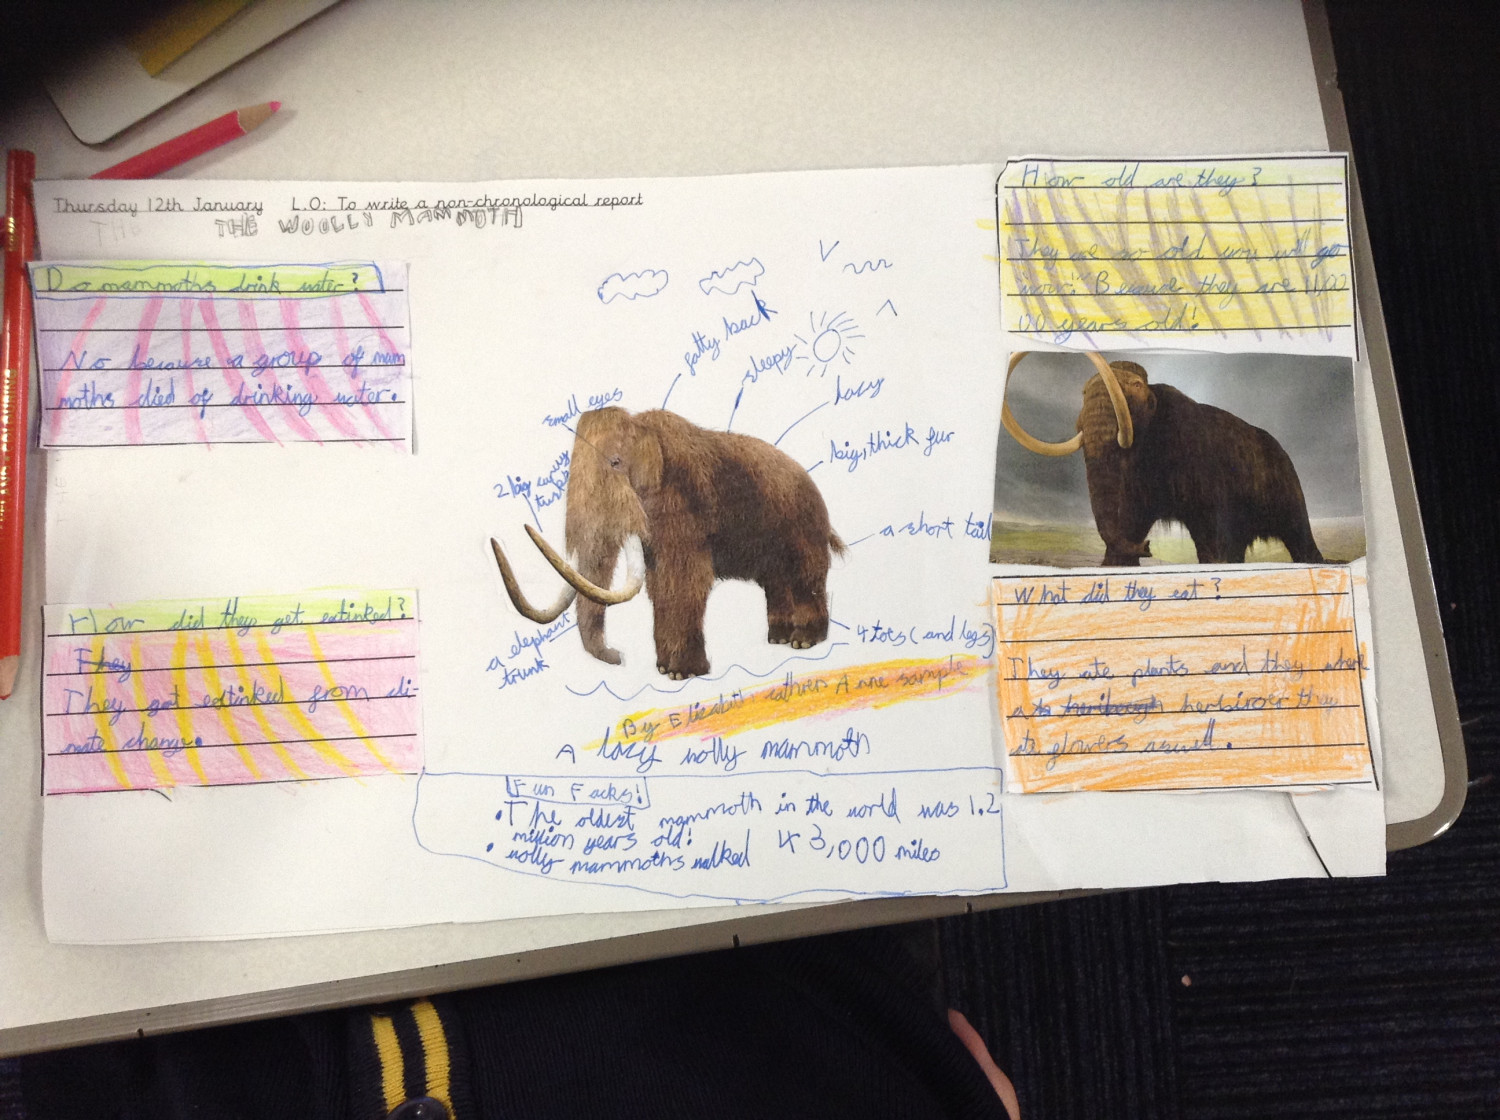 Thursday 12th January L.O: To write a non-chronological report
THE THE WOOLLY MAMMOTH
Do mammoths drink water?
No because a group of mam
moths died of drinking water.
How did they get extinked?
They
They got extinked from cli-
mate change.
small eyes
2 big curvy
tusks
a elephant
trunk
fatty back
sleepy
lazy
big, thick fur
a short tail
4 toes (and legs)
By Elizabith cathren Anne sample
A lazy wolly mammoth
Fun Facks!
• The oldest mammoth in the world was 1.2
million years old!
• wolly mammoths walked 43,000 miles
How old are they?
They are so old you will go
wow! Because they are 11,02
00 years old!
What did they eat?
They ate plants and they where
a herbiroer they
ate flowers aswell.